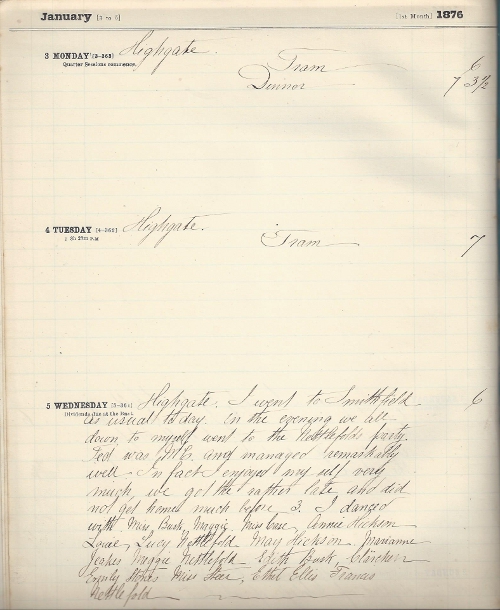 January [3 to 5] [1st Month] 1876
3 MONDAY [3-363] Highgate.
Quarter Sessions commence.
Tram 6
Dinner 7 3½
4 TUESDAY [4-362] Highgate.
Tram 7
5 WEDNESDAY [5-361] Highgate. I went to Smithfield 6
Dividends due at the Bank.
as usual today. In the evening we all
down to myself went to the Nettlefolds party.
Ted was M.C. and managed remarkably
well. In fact I enjoyed my self very
much, we got there rather late, and did
not get home much before 3. I danced
with Miss Bush, Maggie, Miss Case, Annie Hickson
Louie, Lucy Nettlefold May Hickson Marianne
Jeakes Maggie Nettlefold Edith Bush
Emily Stones Miss Ethel Ellis Frances
Nettlefold